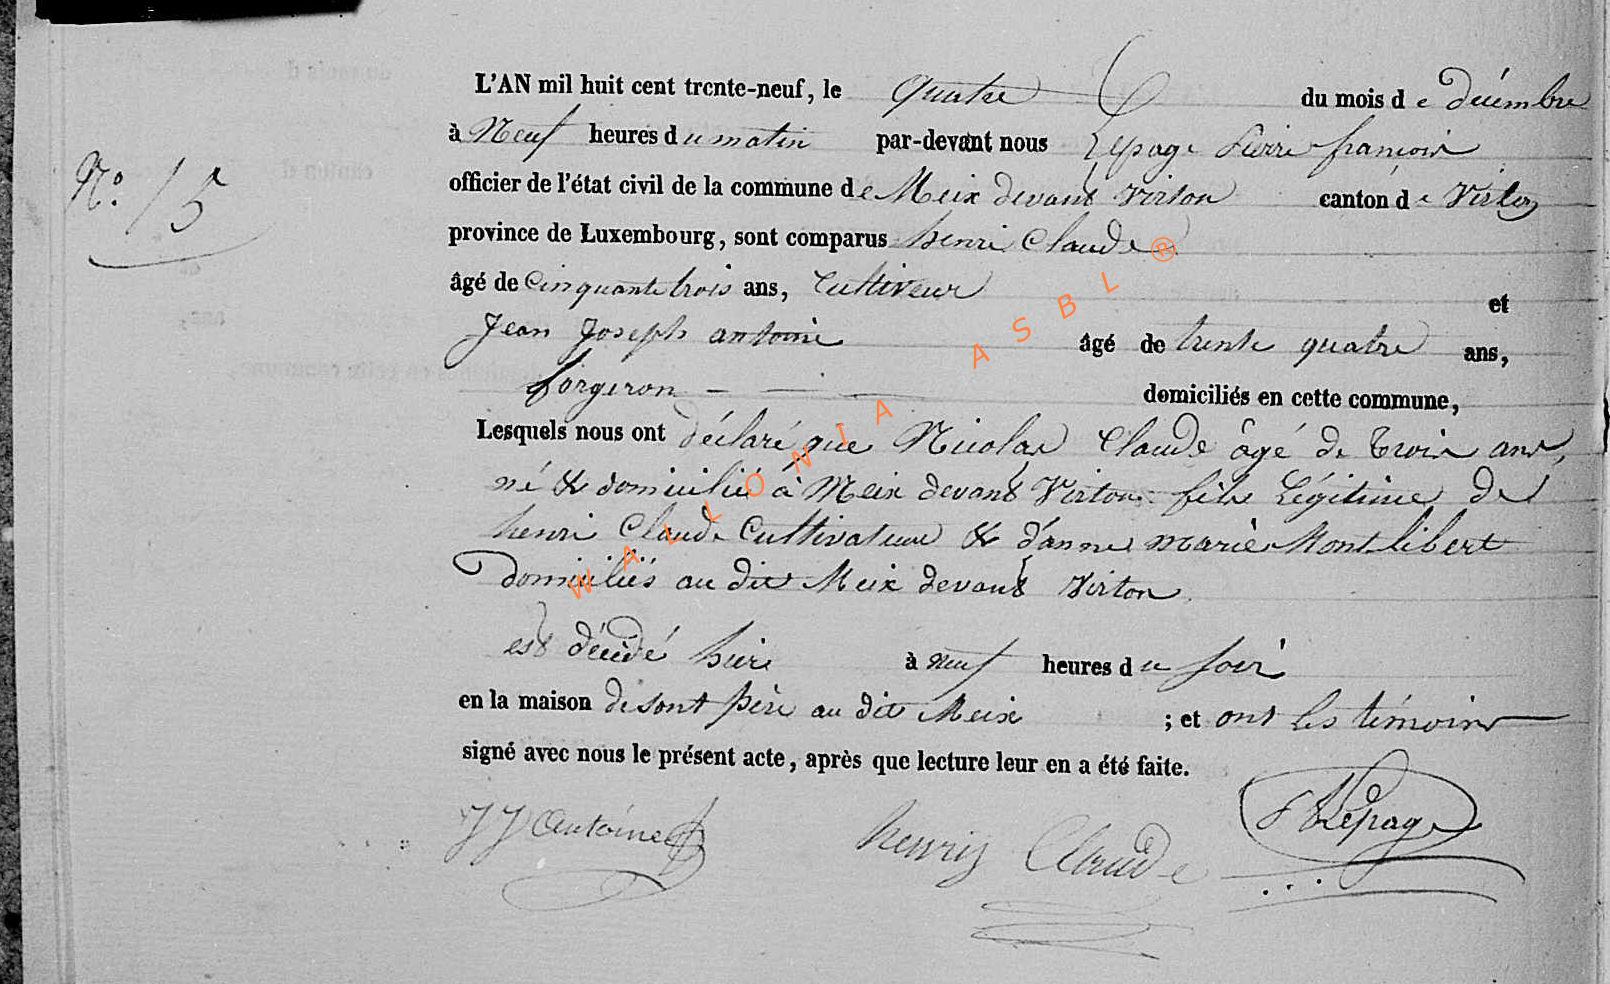 L'AN mil huit cent trente-neuf, le quatre du mois de décembre
à Neuf heures du matin par-devant nous Lepage Pierre françois
N.º 15
officier de l'état civil de la commune de Meix devant Virton canton de Virton
province de Luxembourg, sont comparus henri Claude
âgé de Cinquante trois ans, Cultiveur et
Jean Joseph antoine âgé de trente quatre ans,
forgeron domiciliés en cette commune,
Lesquels nous ont déclaré que Nicolas Claude âgé de trois ans,
né & domicilié à Meix devant Virton fils Légitime de
henri Claude Cultivateur & d'anne marie Montlibert
Domiciliés au dit Meix devant Virton
est décédé hier à neuf heures du soir
en la maison de sont père au dit Meix ; et ont les témoins
signé avec nous le présent acte, après que lecture leur en a été faite.
JJ Antoine henry Claude Lepage
WALLONIA ASBL ®